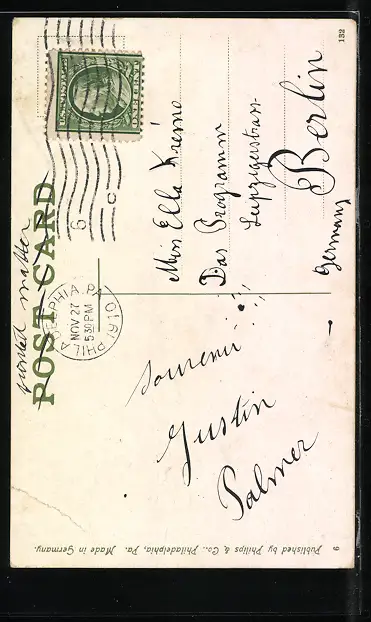 printed matter
POST CARD
U.S. POSTAGE
ONE CENT
PHILADELPHIA, PA.
NOV 27
5 30 PM
1910
C
6
Souvenir!!!
Gustin
Palmer
Miss Ella Kremo
Das Programm
Leipzigerstrass-
Berlin
Germany
132
Published by Philips & Co., Philadelphia, Pa. Made in Germany.
9